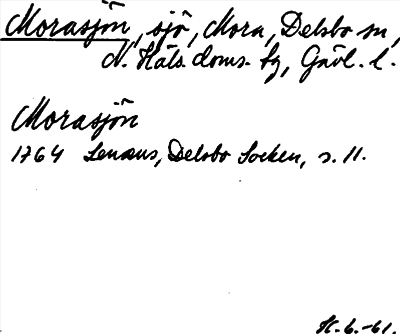 Morasjön, sjö, Mora, Delsbo sn,
N. Häls. doms. fg, Gävl. l.
Morasjön
1764 Lenæus, Delsbo Socken, s. 11.
H. 6.-61.